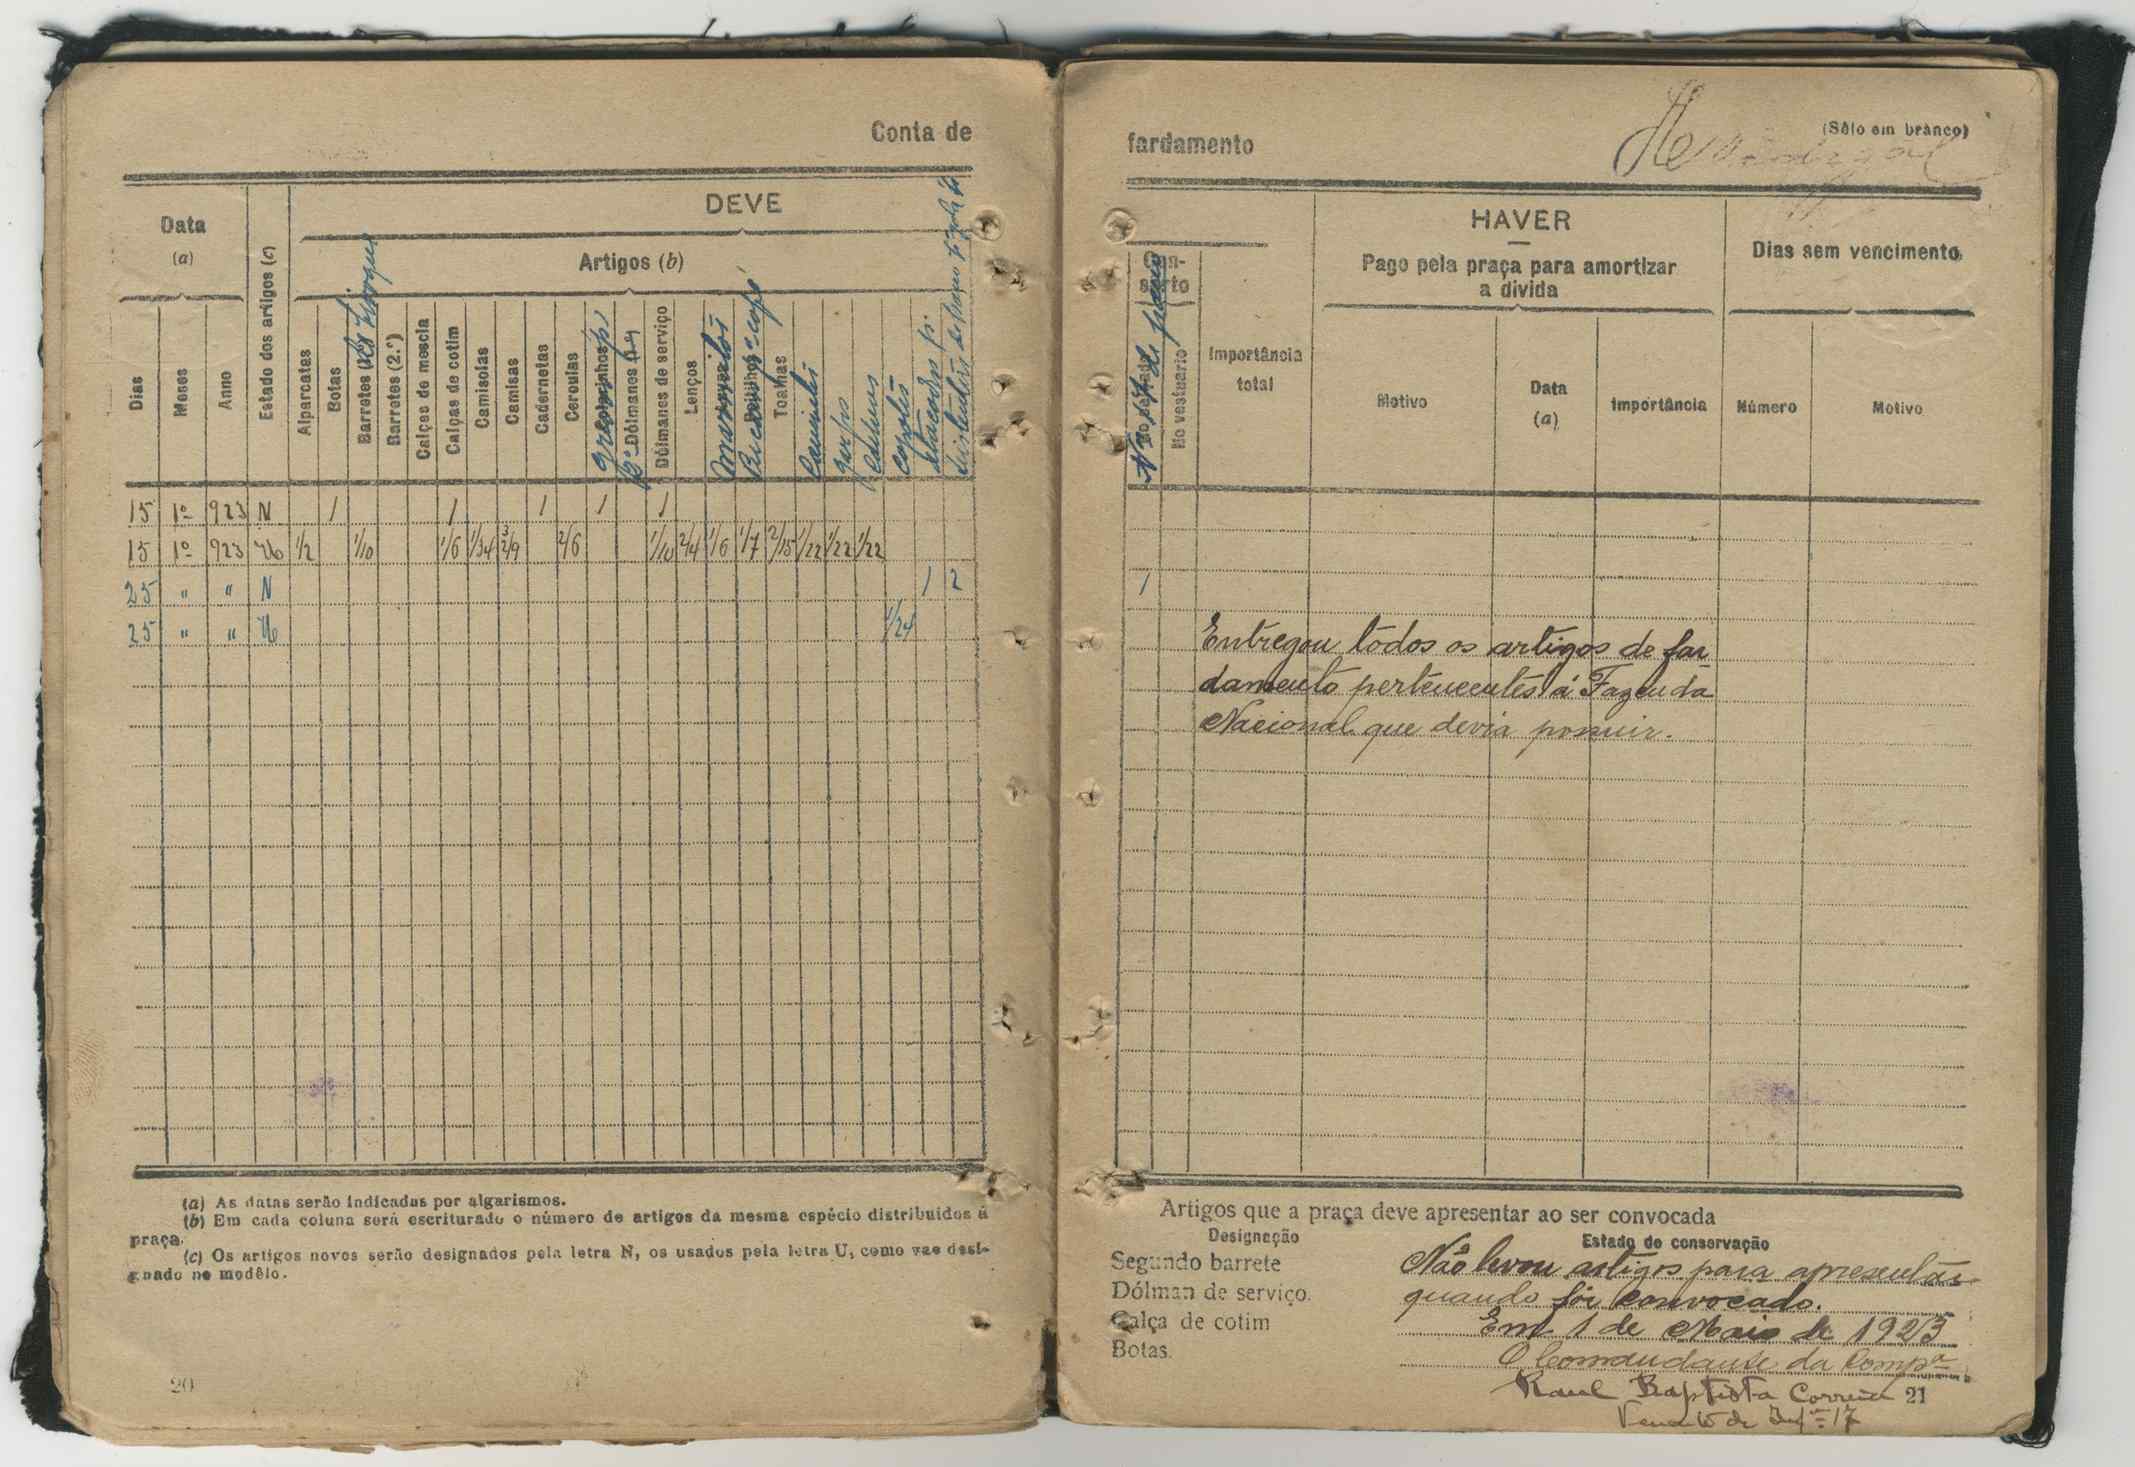 Conta de
DEVE
Data
(a)
Artigos (b)
Dias
Meses
Anno
Estado dos artigos (c)
Alparcatas
Botas
Barretes
Barretes (2.º)
Calças de mescla
Calças de cotim
Camisolas
Camisas
Cadernetas
Ceroulas
Dólmanes
Dólmanes de serviço
Lenços
marmitas
Toalhas
Cantis
garfos
capotes
15 1º 923 N 1 1 1 1 1
15 1º 923 U 1/2 1/10 1/6 1/34 3/9 2/6 1/10 2/4 1/6 1/7 2/15 1/22 1/22 1/22
25 " " N 1 2
25 " " U 1/24
(a) As datas serão indicadas por algarismos.
(b) Em cada coluna será escriturado o número de artigos da mesma espécie distribuidos á
praça.
(c) Os artigos novos serão designados pela letra N, os usados pela letra U, como vae desi-
gnado no modêlo.
20
fardamento
(Sêlo em branco)
HAVER
Con-
sêrto
Pago pela praça para amortizar
a divida
Dias sem vencimento
No vestuario
Importância
total
Motivo
Data
(a)
Importância
Número
Motivo
1
Entregou todos os artigos de far
damento pertencentes á Fazenda
Nacional que devia possuir.
Artigos que a praça deve apresentar ao ser convocada
Designação
Estado de conservação
Segundo barrete
Não levou artigos para apresentar
Dólman de serviço.
quando fôr convocado.
Calça de cotim
Em 1 de Maio de 1923
Botas.
O Comandante da Compª
Raul Baptista Correia
21
de Infª 17